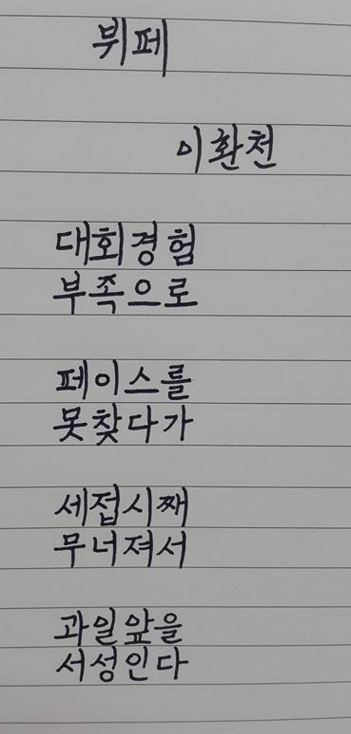 뷔페
이환천
대회경험
부족으로
페이스를
못찾다가
세접시째
무너져서
과일앞을
서성인다